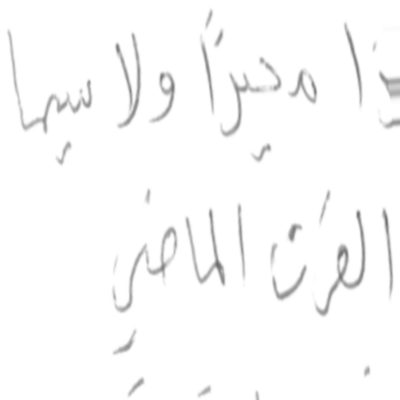 ا محيرًا ولا سيما
القرن الماضي